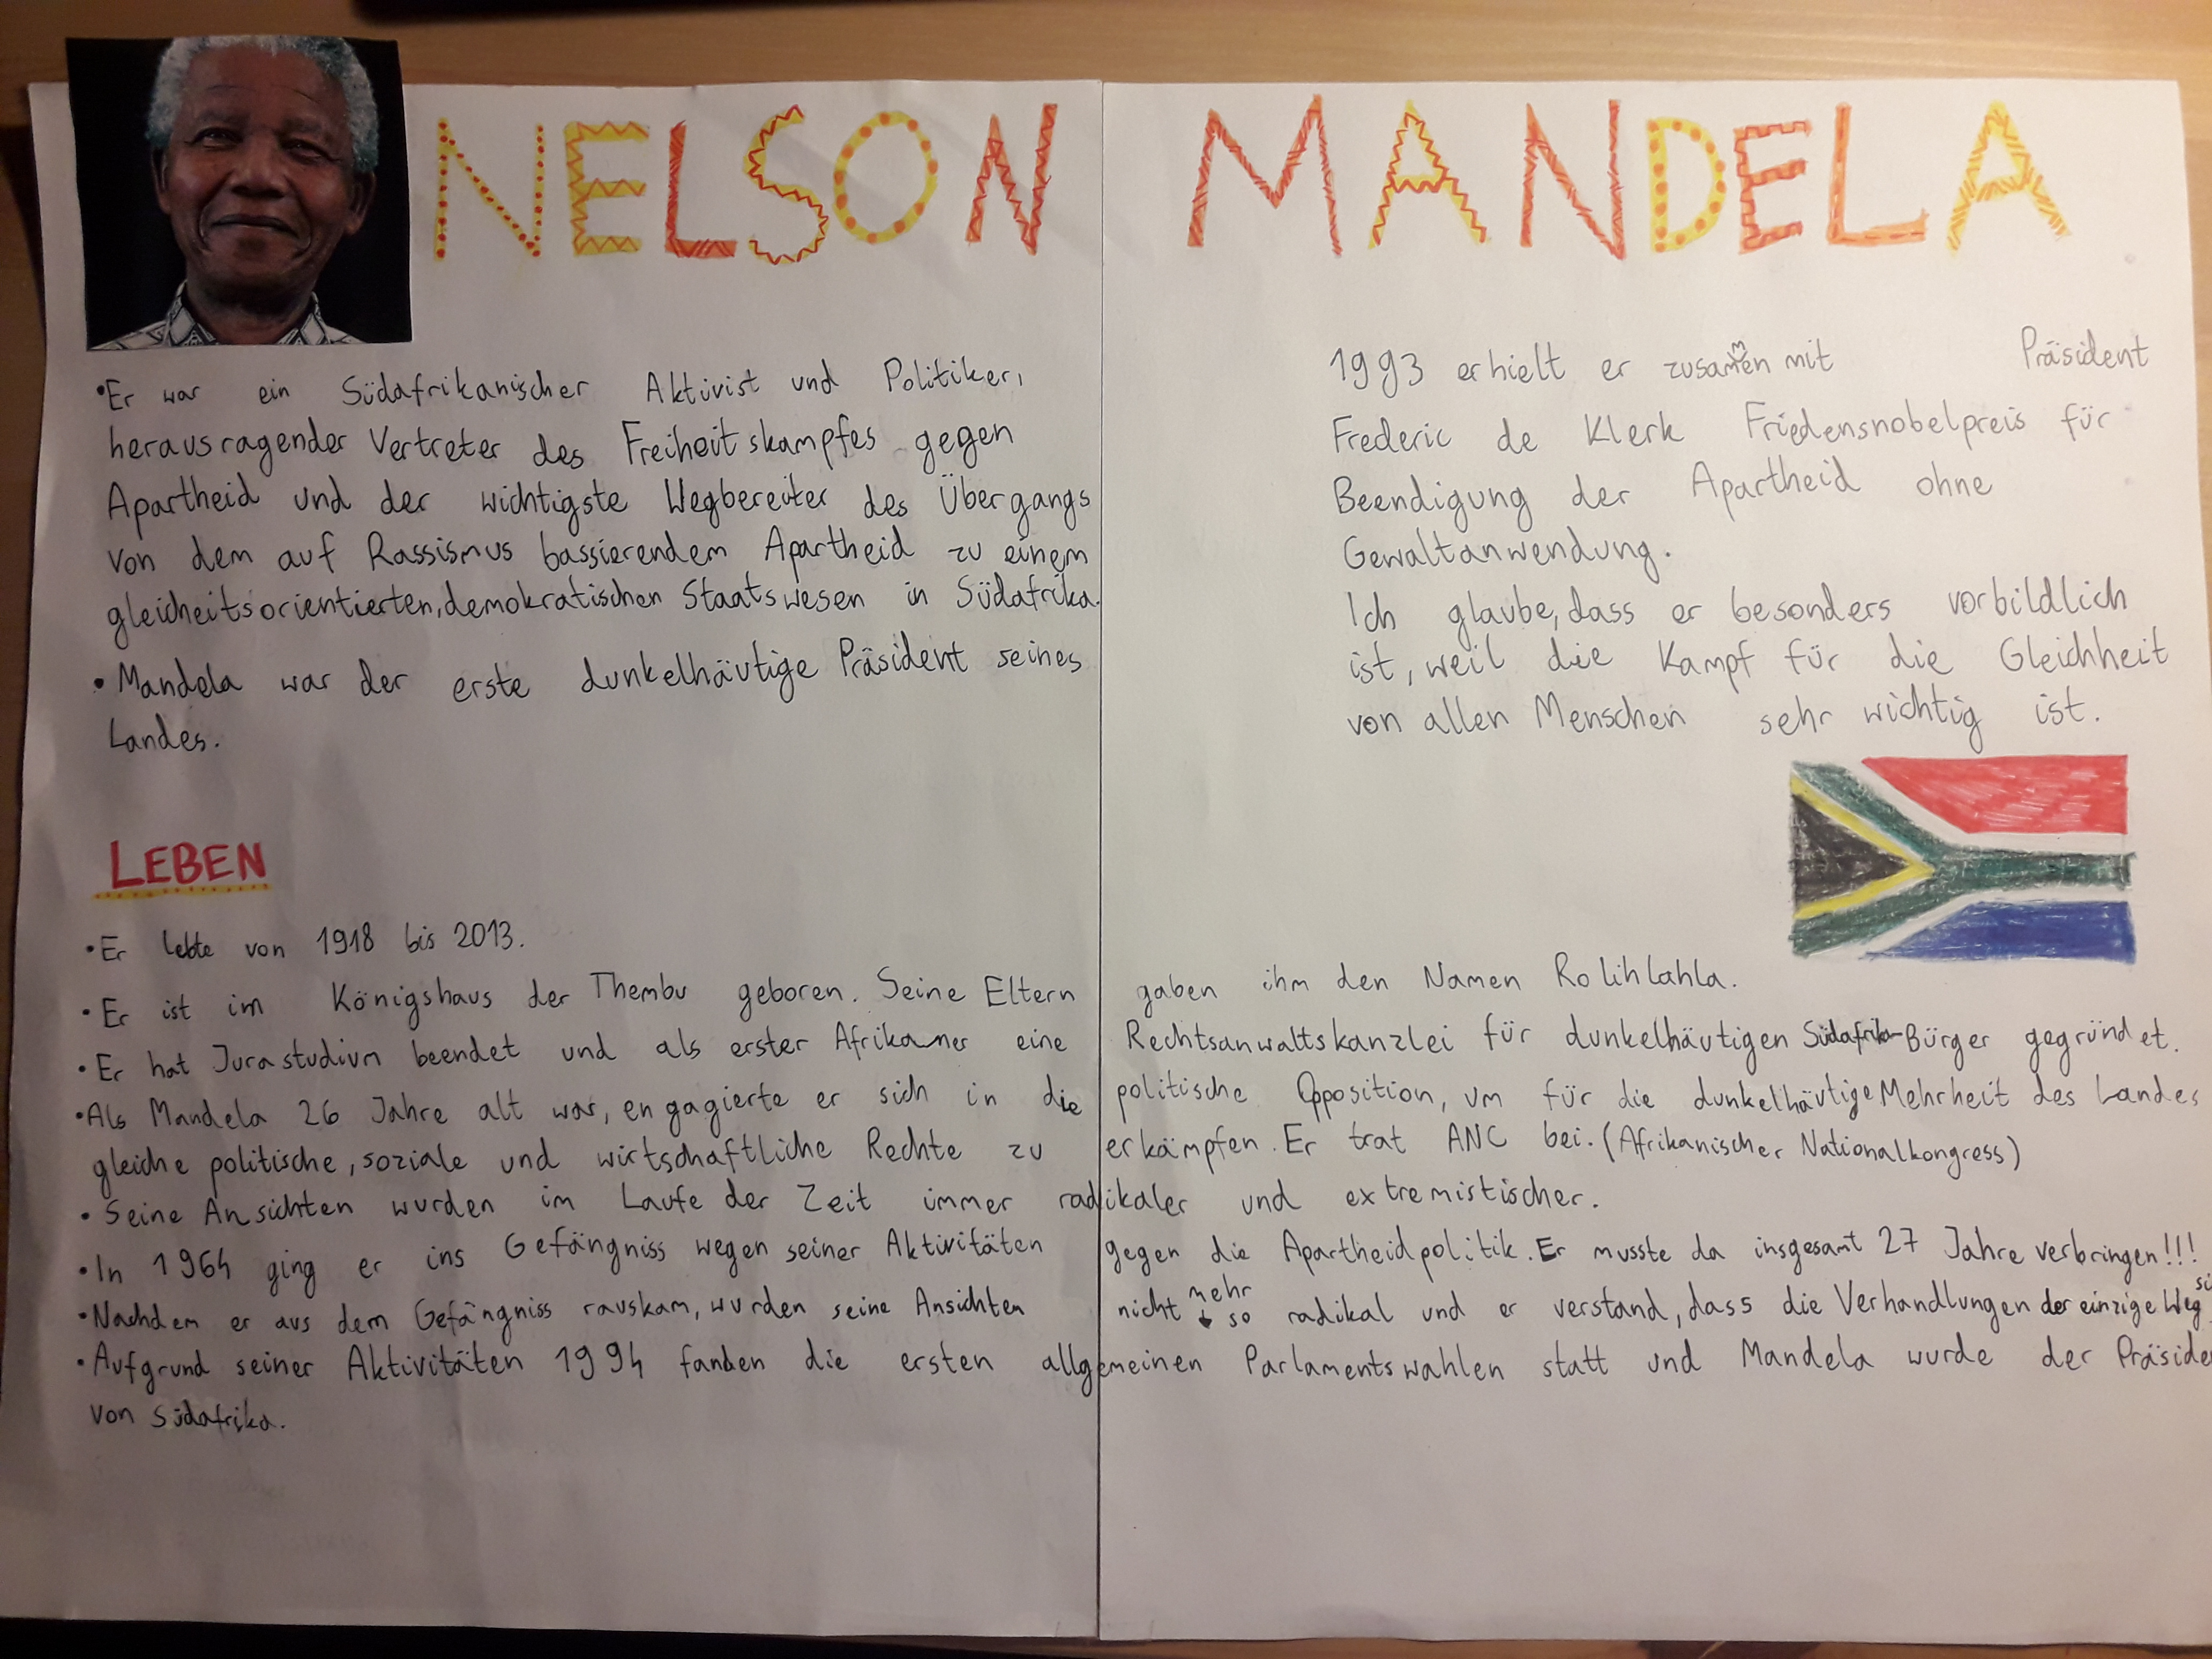 NELSON MANDELA
•Er war ein Südafrikanischer Aktivist und Politiker,
herausragender Vertreter des Freiheitskampfes gegen
Apartheid und der wichtigste Wegbereiter des Übergangs
von dem auf Rassismus bassierendem Apartheid zu einem
gleicheitsorientierten, demokratischen Staatswesen in Südafrika.
• Mandela war der erste dunkelhäutige Präsident seines
Landes.
1993 erhielt er zusammen mit Präsident
Frederic de Klerk Friedensnobelpreis für
Beendigung der Apartheid ohne
Gewaltanwendung.
Ich glaube, dass er besonders vorbildlich
ist, weil die Kampf für die Gleichheit
von allen Menschen sehr wichtig ist.
LEBEN
•Er lebte von 1918 bis 2013.
•Er ist im Königshaus der Thembu geboren. Seine Eltern gaben ihm den Namen Rolihlahla.
•Er hat Jurastudium beendet und als erster Afrikaner eine Rechtsanwaltskanzlei für dunkelhäutigen Südafrika-Bürger gegründet.
•Als Mandela 26 Jahre alt war, engagierte er sich in die politische Opposition, um für die dunkelhäutige Mehrheit des Landes
gleiche politische, soziale und wirtschaftliche Rechte zu erkämpfen. Er trat ANC bei. (Afrikanischer Nationalkongress)
• Seine Ansichten wurden im Laufe der Zeit immer radikaler und extremistischer.
•In 1964 ging er ins Gefängniss wegen seiner Aktivitäten gegen die Apartheidpolitik. Er musste da insgesamt 27 Jahre verbringen!!!
•Nachdem er aus dem Gefängniss rauskam, wurden seine Ansichten nicht mehr so radikal und er verstand, dass die Verhandlungen der einzige Weg
•Aufgrund seiner Aktivitäten 1994 fanden die ersten allgemeinen Parlamentswahlen statt und Mandela wurde der Präside
von Südafrika.